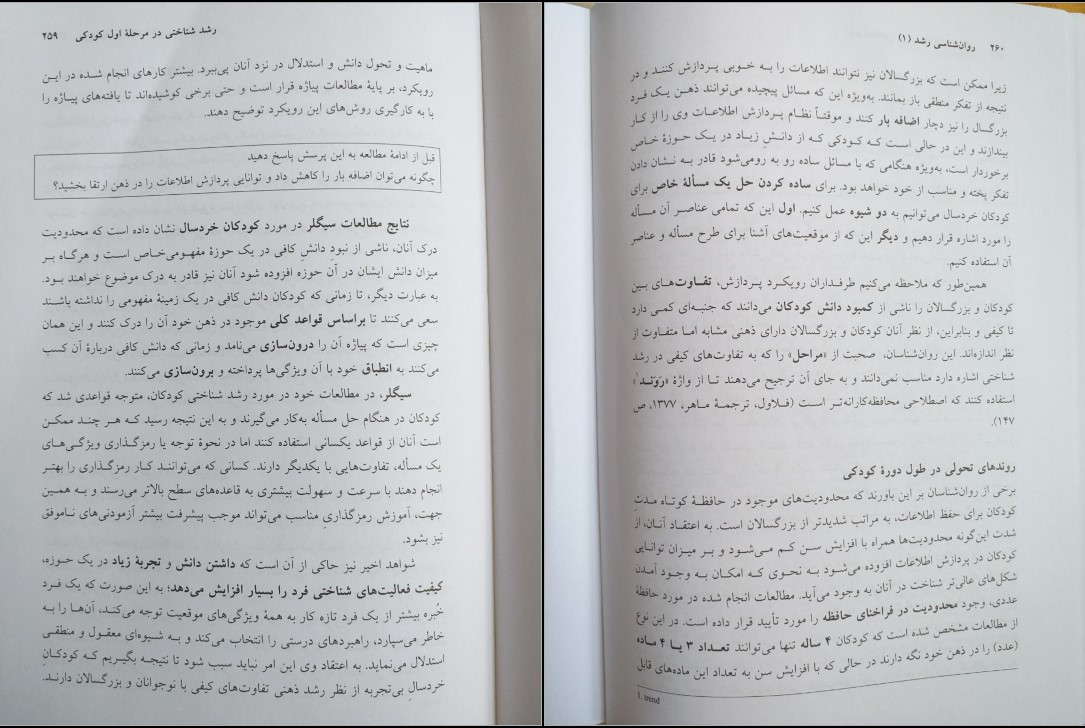 رشد شناختی در مرحلهٔ اول کودکی ۲۵۹
ماهیت و تحول دانش و استدلال در نزد آنان پی‌ببرد. بیشتر کارهای انجام شده در این
رویکرد، بر پایهٔ مطالعات پیاژه قرار است و حتی برخی کوشیده‌اند تا یافته‌های پیـاژه را
با به کارگیری روش‌های این رویکرد توضیح دهند.
قبل از ادامهٔ مطالعه به این پرسش پاسخ دهید
چگونه می‌توان اضافه بار را کاهش داد و توانایی پردازش اطلاعات را در ذهن ارتقا بخشید؟
نتایج مطالعات سیگلر در مورد کودکان خردسال نشان داده است که محدودیت
درک آنان، ناشی از نبودِ دانشِ کافی در یک حوزهٔ مفهومی‌خاص است و هرگاه بر
میزان دانش ایشان در آن حوزه افزوده شود آنان نیز قادر به درک موضوع خواهند بود.
به عبارت دیگر، تا زمانی که کودکان دانش کافی در یک زمینهٔ مفهومی را نداشته باشند
سعی می‌کنند تا براساس قواعد کلی موجود در ذهن خود آن را درک کنند و این همان
چیزی است که پیاژه آن را درون‌سازی می‌نامد و زمانی که دانش کافی دربارهٔ آن کسب
می‌کنند به انطباق خود با آن ویژگی‌ها پرداخته و برون‌سازی می‌کنند.
سیگلر، در مطالعات خود در مورد رشد شناختی کودکان، متوجه قواعدی شد که
کودکان در هنگام حل مسأله به‌کار می‌گیرند و به این نتیجه رسید که هـر چنـد ممکـن
است آنان از قواعد یکسانی استفاده کنند اما در نحوهٔ توجه یا رمزگذاری ویژگـی‌هـای
یک مسأله، تفاوت‌هایی با یکدیگر دارند. کسانی که می‌تواننـد کـار رمزگـذاری را بهتـر
انجام دهند با سرعت و سهولت بیشتری به قاعده‌های سطح بالاتر می‌رسند و بـه همـین
جهت، آموزش رمزگذاریِ مناسب می‌تواند موجب پیشرفت بیشتر آزمودنی‌های ناموفق
نیز بشود.
شواهد اخیر نیز حاکی از آن است که داشتن دانش و تجربهٔ زیاد در یک حـوزه،
کیفیت فعالیت‌های شناختی فرد را بسیار افزایش می‌دهد؛ به این صورت که یک فـرد
خُبره بیشتر از یک فرد تازه کار به همهٔ ویژگی‌های موقعیت توجه می‌کند، آن‌هـا را بـه
خاطر می‌سپارد، راهبردهای درستی را انتخاب می‌کند و بـه شـیوه‌ای معقـول و منطقـی
استدلال می‌نماید. به اعتقاد وی این امر نباید سبب شود تا نتیجـه بگیریـم کـه کودکـانِ
خردسالِ بی‌تجربه از نظر رشد ذهنی تفاوت‌های کیفی با نوجوانان و بزرگـسالان دارنـد.
۲۶۰ روان‌شناسی رشد (۱)
زیرا ممکن است که بزرگسالان نیز نتوانند اطلاعات را بـه خـوبی پـردازش کننـد و در
نتیجه از تفکر منطقی باز بمانند. به‌ویژه این که مسائل پیچیده می‌توانند ذهـن یـک فـرد
بزرگسال را نیز دچار اضافه بار کنند و موقتـاً نظـام پـردازش اطلاعـات وی را از کـار
بیندازند و این در حالی است کـه کـودکی کـه از دانـشِ زیـاد در یـک حـوزهٔ خـاص
برخوردار است، به‌ویژه هنگامی که با مسائل ساده رو به رومی‌شود قادر به نشان دادن
تفکر پخته و مناسب از خود خواهد بود. برای ساده کردن حل یک مسألهٔ خاص برای
کودکان خردسال می‌توانیم به دو شیوه عمل کنیم. اول این که تمامی عناصـر آن مسأله
را مورد اشاره قرار دهیم و دیگر این که از موقعیت‌های آشنا برای طرح مسأله و عناصر
آن استفاده کنیم.
همین‌طور که ملاحظه می‌کنیم طرفـداران رویکـرد پـردازش، تفـاوت‌هـای بـین
کودکان و بزرگسالان را ناشی از کمبود دانش کودکان می‌دانند که جنبه‌ای کمـی دارد
تا کیفی و بنابراین، از نظر آنان کودکان و بزرگسالان دارای ذهنی مشابه امـا متفـاوت از
نظر اندازه‌اند. این روان‌شناسان، صحبت از «مراحل» را که به تفاوت‌های کیفی در رشد
شناختی اشاره دارد مناسب نمی‌دانند و به جای آن ترجیح می‌دهند تـا از واژهٔ «رَوَنـد۱»
استفاده کنند که اصطلاحی محافظه‌کارانه‌تـر اسـت (فـلاول، ترجمـهٔ مـاهر، ۱۳۷۷، ص
۱۴۷).
روندهای تحولی در طول دورهٔ کودکی
برخی از روان‌شناسان بر این باورند که محدودیت‌های موجود در حافظـهٔ کوتـاه مـدتِ
کودکان برای حفظ اطلاعات، به مراتب شدیدتر از بزرگسالان است. به اعتقاد آنـان، از
شدت این‌گونه محدودیت‌ها همراه با افزایش سـن کـم مـی‌شـود و بـر میـزان توانایی
کودکان در پردازش اطلاعات افزوده می‌شـود بـه نحـوی کـه امکـان بـه وجـود آمـدن
شکل‌های عالی‌تر شناخت در آنان به وجود می‌آید. مطالعات انجام شده در مورد حافظهٔ
عددی، وجود محدودیت در فراخنای حافظه را مورد تأیید قرار داده است. در این نوع
از مطالعات مشخص شده است که کودکان ۴ ساله تنها می‌توانند تعـداد ۳ یـا ۴ مـاده
(عدد) را در ذهن خود نگه دارند در حالی که با افزایش سن به تعداد این ماده‌های قابل
1. trend